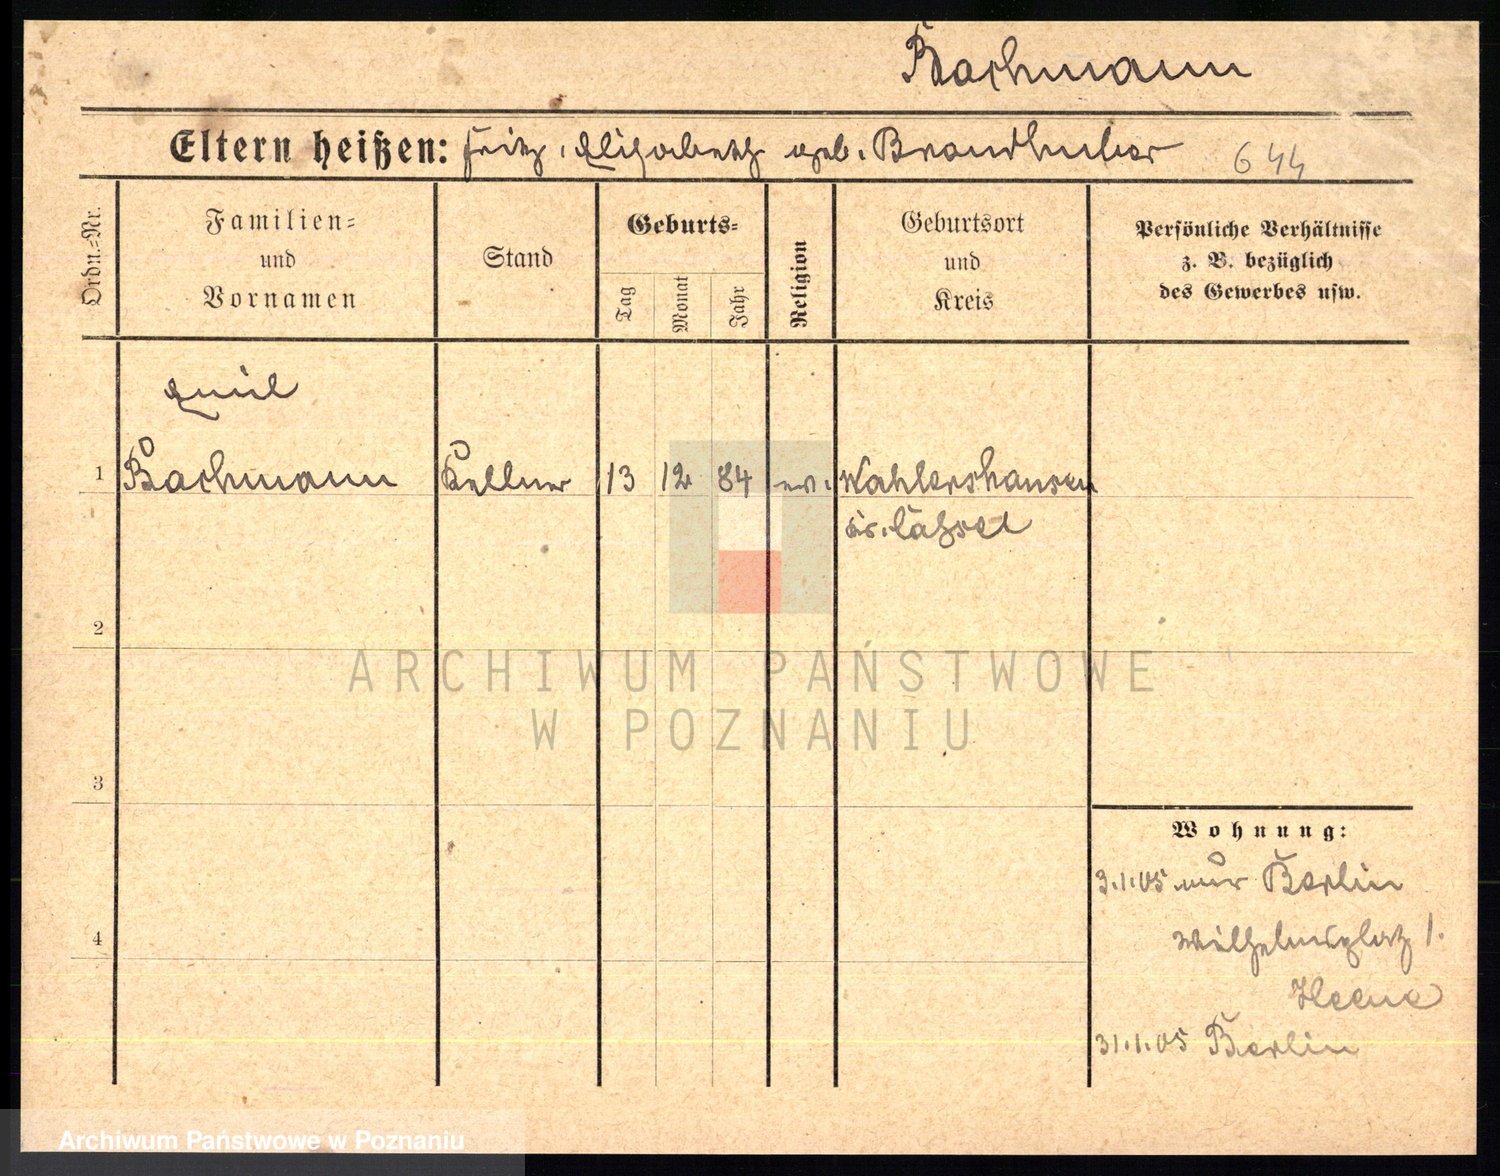 Bachmann
Eltern heißen: Fritz, Elisabeth geb. Brandhuber 644
Ordn.=Nr.
Familien=
und
Vornamen
Stand
Geburts=
Tag
Monat
Jahr
Religion
Geburtsort
und
Kreis
Persönliche Verhältnisse
z. B. bezüglich
des Gewerbes usw.
Emil
1 Bachmann Kellner 13 12 84 ev. Wahlershausen
Kr.
2
3
4
Wohnung:
3.1.05 Berlin
Wilhelmsplatz 1.
31.1.05 Berlin
ARCHIWUM PAŃSTWOWE
W POZNANIU
Archiwum Państwowe w Poznaniu